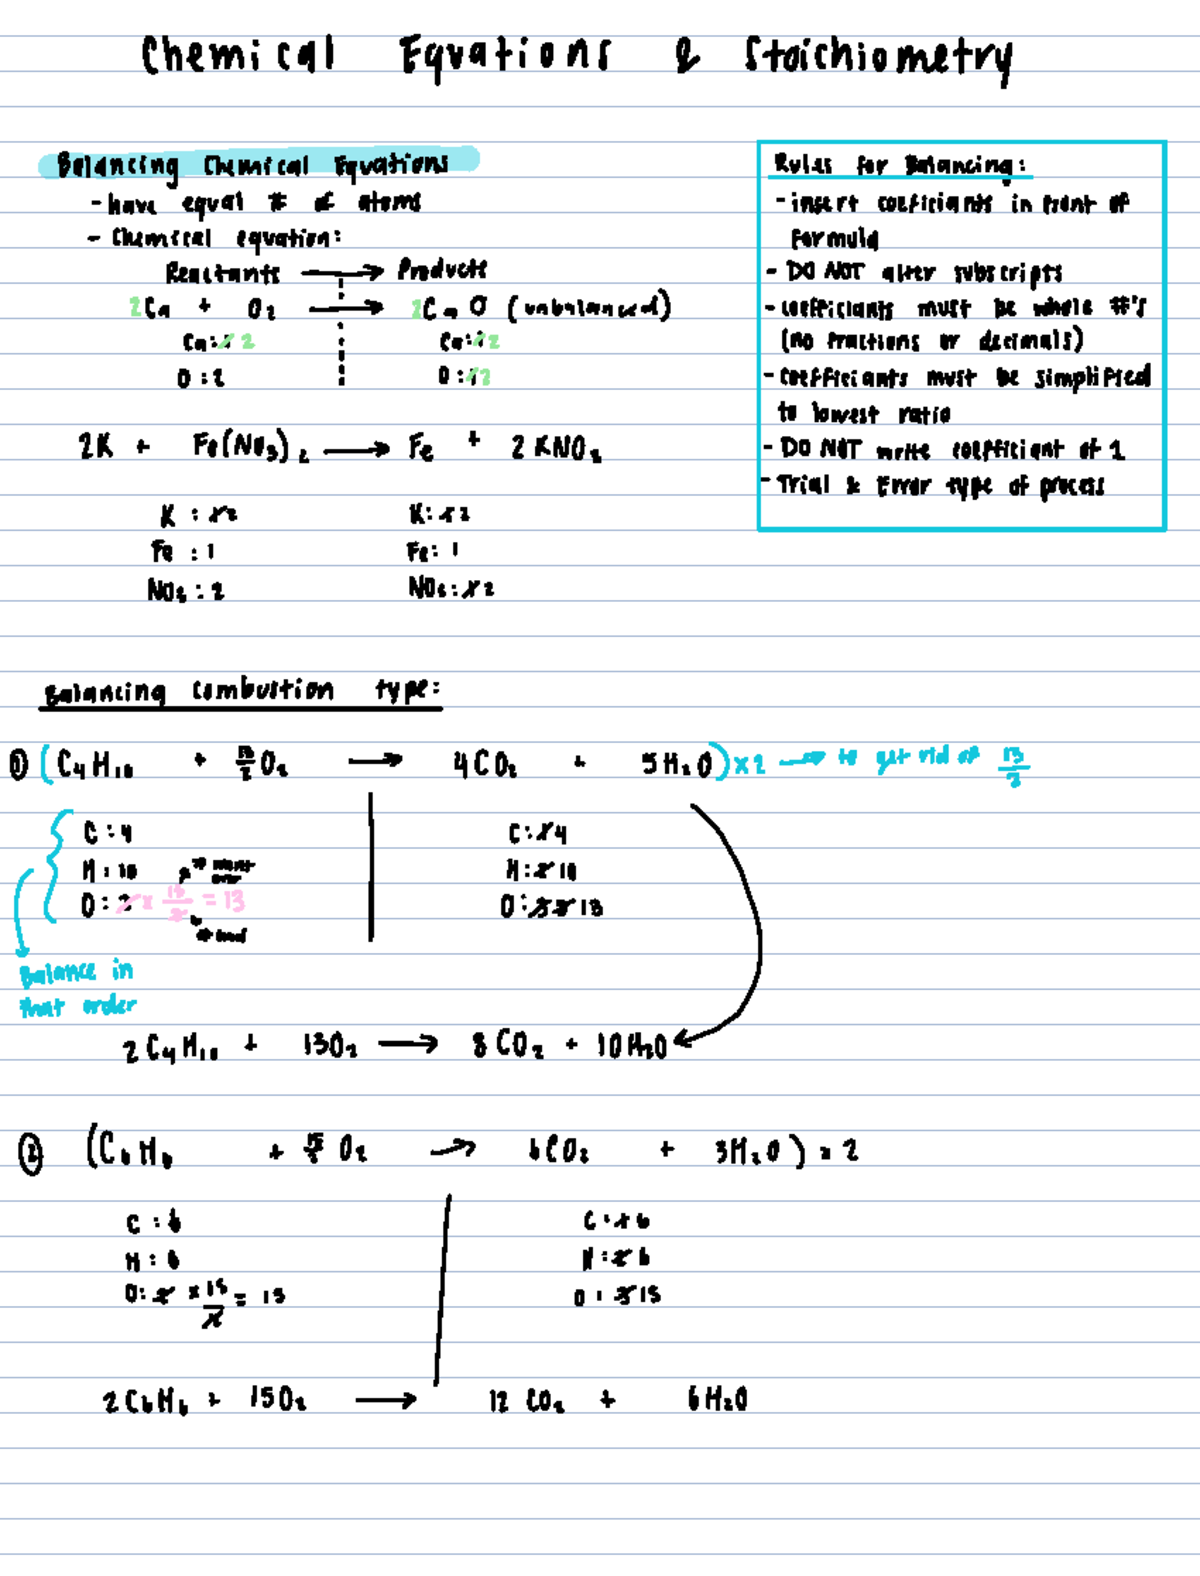 Chemical Equations & Stoichiometry
Balancing Chemical Equations
- have equal # of atoms
- Chemical equation:
Reactants → Products
2Ca + O₂ → 2CaO (unbalanced)
Ca: 1 2 Ca: 1 2
O: 2 O: 1 2
2K + Fe(NO₃)₂ → Fe + 2KNO₃
K : 1 2 K: 1 2
Fe : 1 Fe: 1
NO₃ : 2 NO₃: 1 2
Rules for Balancing:
- insert coefficiants in front of
formula
- DO NOT alter subscripts
- coefficiants must be whole #'s
(no fractions or decimals)
- coefficiants must be simplified
to lowest ratio
- DO NOT write coefficiant of 1
- Trial & Error type of process
Balancing combustion type:
① (C₄H₁₀ + 13/2 O₂ → 4CO₂ + 5H₂O) x2 → to get rid of 13/2
C : 4 C: 1 4
H : 10 H: 2 10
O : 2 x 13/2 = 13 O: 3 13
Balance in
that order
2C₄H₁₀ + 13O₂ → 8CO₂ + 10H₂O
② (C₆H₆ + 15/2 O₂ → 6CO₂ + 3H₂O) x 2
C : 6 C: 1 6
H : 6 H: 2 6
O: 2 x 15/2 = 15 O: 3 15
2C₆H₆ + 15O₂ → 12CO₂ + 6H₂O